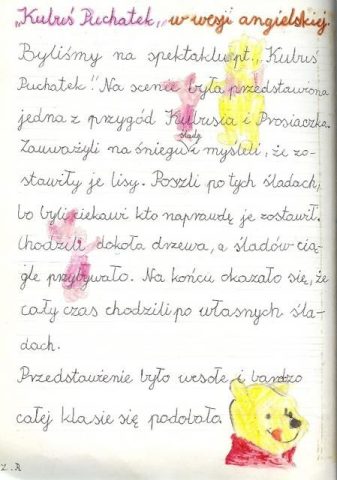 „Kubuś Puchatek„ w wesji angielskiej.
Byliśmy na spektaklu pt. „Kubuś
Puchatek". Na scenie była przedstawiona
jedna z przygód Kubusia i Prosiaczka.
ślady
Zauważyli na śniegu i myśleli, że zo-
stawiły je lisy. Poszli po tych śladach,
bo byli ciekawi kto naprawdę je zostawił.
Chodzili dokoła drzewa, a śladów cią-
gle przybywało. Na końcu okazało się, że
cały czas chodzili po własnych śla-
dach.
Przedstawienie było wesołe i bardzo
całej klasie się podobało.
Z.A